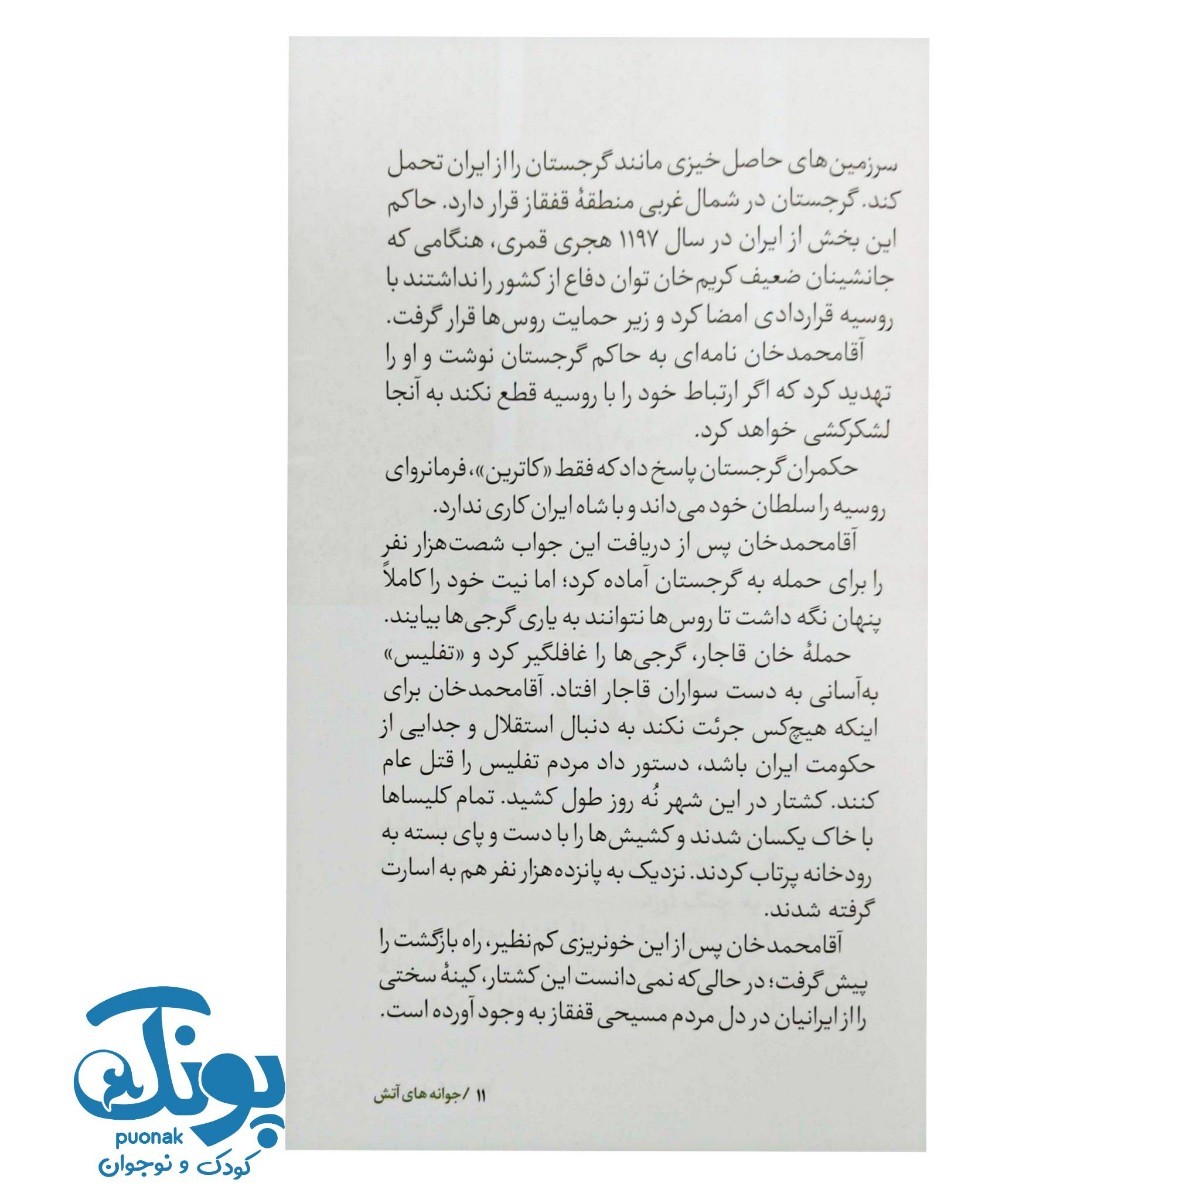 سرزمین‌های حاصل‌خیزی مانند گرجستان را از ایران تحمل
کند. گرجستان در شمال‌غربی منطقهٔ قفقاز قرار دارد. حاکم
این بخش از ایران در سال ۱۱۹۷ هجری قمری، هنگامی که
جانشینان ضعیف کریم‌خان توان دفاع از کشور را نداشتند با
روسیه قراردادی امضا کرد و زیر حمایت روس‌ها قرار گرفت.
آقامحمدخان نامه‌ای به حاکم گرجستان نوشت و او را
تهدید کرد که اگر ارتباط خود را با روسیه قطع نکند به آنجا
لشکرکشی خواهد کرد.
حکمران گرجستان پاسخ داد که فقط «کاترین»، فرمانروای
روسیه را سلطان خود می‌داند و با شاه ایران کاری ندارد.
آقامحمدخان پس از دریافت این جواب شصت‌هزار نفر
را برای حمله به گرجستان آماده کرد؛ اما نیت خود را کاملاً
پنهان نگه داشت تا روس‌ها نتوانند به یاری گرجی‌ها بیایند.
حملهٔ خان قاجار، گرجی‌ها را غافلگیر کرد و «تفلیس»
به‌آسانی به دست سواران قاجار افتاد. آقامحمدخان برای
اینکه هیچ‌کس جرئت نکند به دنبال استقلال و جدایی از
حکومت ایران باشد، دستور داد مردم تفلیس را قتل عام
کنند. کشتار در این شهر نُه روز طول کشید. تمام کلیساها
با خاک یکسان شدند و کشیش‌ها را با دست و پای بسته به
رودخانه پرتاب کردند. نزدیک به پانزده‌هزار نفر هم به اسارت
گرفته شدند.
آقامحمدخان پس از این خونریزی کم‌نظیر، راه بازگشت را
پیش گرفت؛ در حالی‌که نمی‌دانست این کشتار، کینهٔ سختی
را از ایرانیان در دل مردم مسیحی قفقاز به وجود آورده است.
۱۱ / جوانه های آتش
پونک
puonak
کودک و نوجوان